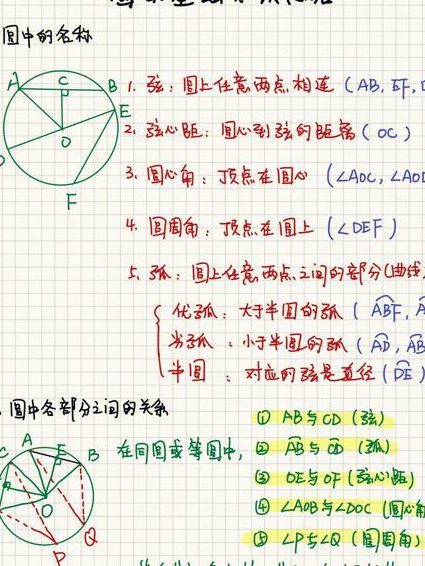 圆中的名称
A C B E O F
1. 弦：圆上任意两点相连（AB, EF,
2. 弦心距：圆心到弦的距离（OC）
3. 圆心角：顶点在圆心（∠AOC, ∠AOD
4. 圆周角：顶点在圆上（∠DEF）
5. 弧：圆上任意两点之间的部分（曲线
优弧：大于半圆的弧（ABF, A
劣弧：小于半圆的弧（AD, AB
半圆：对应的弦是直径（DE）
圆中各部分之间的关系
在同圆或等圆中，
① AB与CD（弦）
② AB与CD（弧）
③ OE与OF（弦心距）
④ ∠AOB与∠DOC（圆心角
⑤ ∠P与∠Q（圆周角）
C A E B O P Q